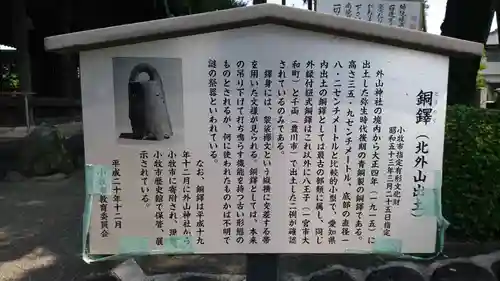 銅鐸（北外山出土）
小牧市指定有形文化財
昭和五十三年三月二十五日指定
外山神社の境内から大正四年（一九一五）に
出土した弥生時代後期の青銅製の銅鐸である。
高さ三五・九センチメートル、底部の直径一
八・二センチメートルと比較的小型で、愛知県
内出土の銅鐸としては最古の部類に属し、同じ
外縁付鈕式銅鐸はこれ以外に八王子（一宮市大
和町）と千両（豊川市）で出土した二例が確認
されているのみである。
鐸身には、袈裟襷文という縦横に交差する帯
を用いた文様が見られる。銅鐸としては、本来
の吊り下げて打ち鳴らす機能を持つ古い形態の
ものとされるが、何に使われたものかは不明で
謎の祭器といわれている。
なお、銅鐸は平成十九
年十二月に外山神社から
小牧市に寄附され、現在
小牧市歴史館で保管、展
示されている。
平成二十年十二月
小牧市教育委員会